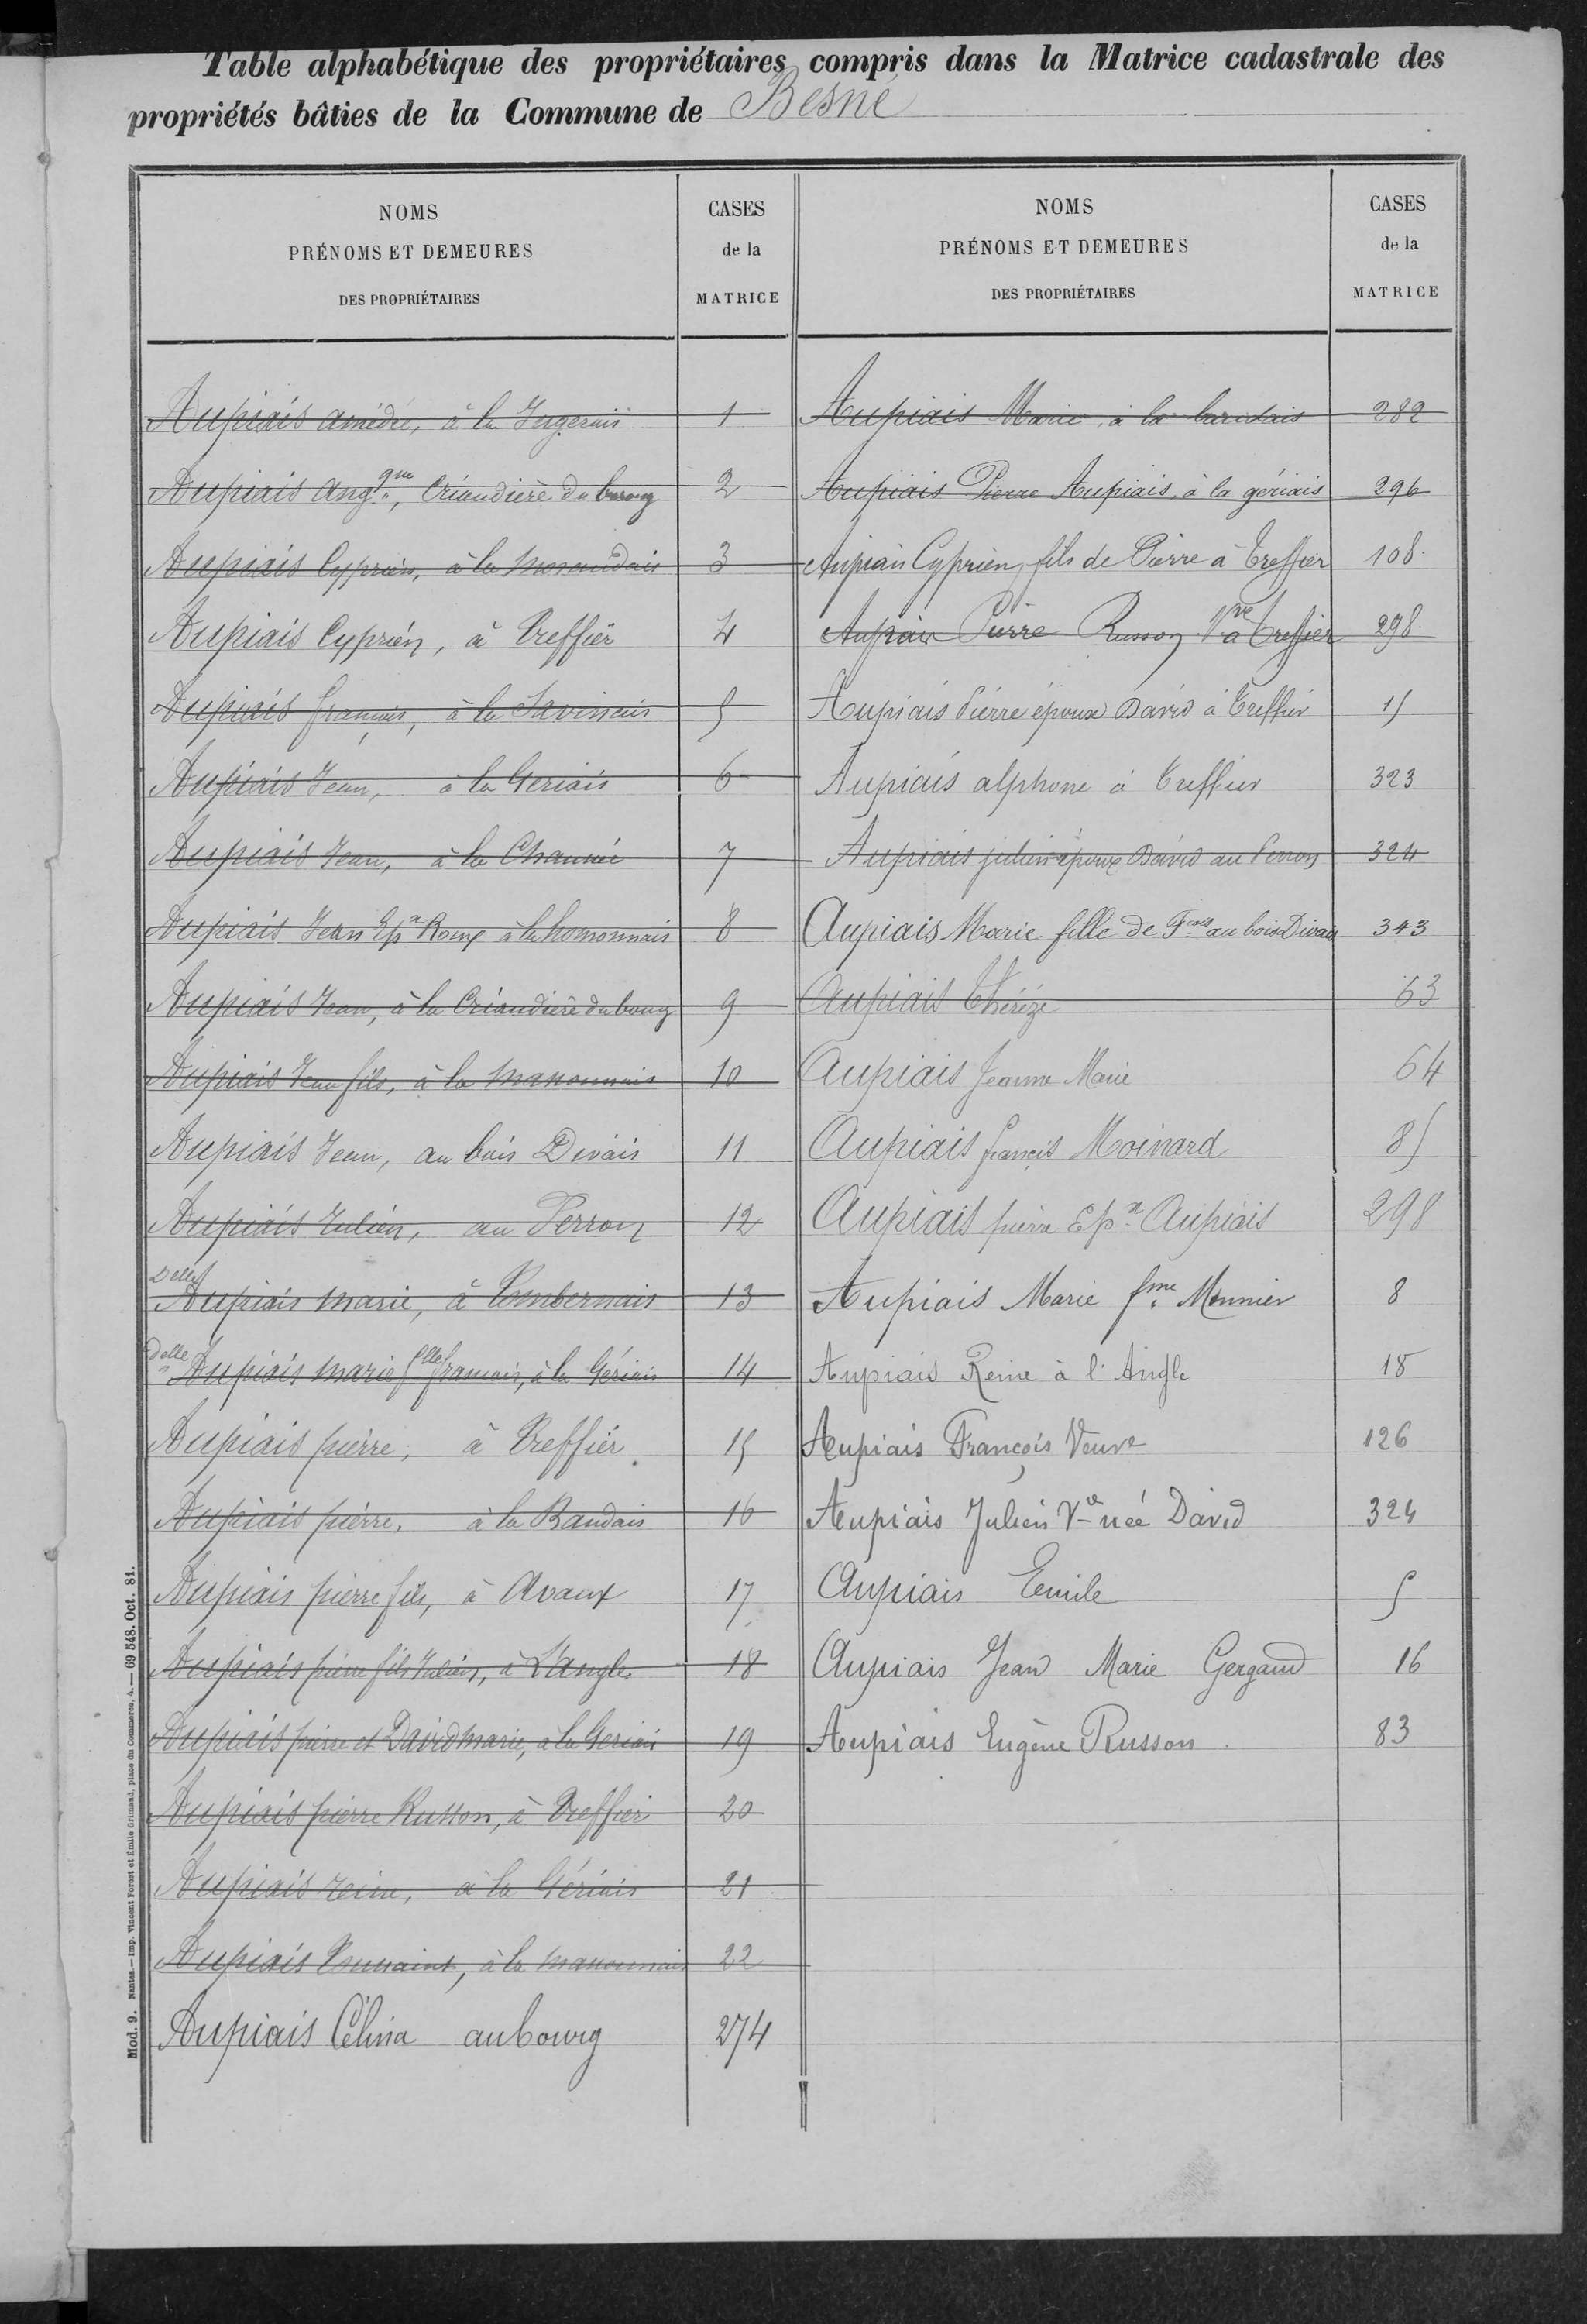 Table alphabétique des propriétaires compris dans la Matrice cadastrale des
propriétés bâties de la Commune de Besné
NOMS
PRÉNOMS ET DEMEURES
DES PROPRIÉTAIRES
CASES
de la
MATRICE
Aupiais amédée, à la 1
Aupiais Ang.que, Criaudière du bourg 2
Aupiais Cyprien, à la 3
Aupiais Cyprien, à Treffier 4
Aupiais françois, à la Savinais 5
Aupiais Jean, à la Geriais 6
Aupiais Jean, à la 7
Aupiais Jean Epx Roux à la 8
Aupiais Jean, à la Criaudière du bourg 9
Aupiais Jean fils, à la 10
Aupiais Jean, au bois Divais 11
Aupiais Julien, au Perron 12
Delle Aupiais marie, à 13
Delle Aupiais marie flle françois, à la Gériais 14
Aupiais pierre, à Treffier 15
Aupiais pierre, à la Baudais 16
Aupiais pierre fils, à Avaux 17
Aupiais pierre fils Julien, à L'angle 18
Aupiais pierre et David marie, à la Geriais 19
Aupiais pierre Russon, à Treffier 20
Aupiais reine, à la Gériais 21
Aupiais Toussaint, à la 22
Aupiais Célina au bourg 274
NOMS
PRÉNOMS ET DEMEURES
DES PROPRIÉTAIRES
CASES
de la
MATRICE
Aupiais Marie à la 282
Aupiais Pierre Aupiais à la gériais 296
Aupiais Cyprien, fils de Pierre à Treffier 108
Aupiais Pierre Russon Vve à Treffier 298
Aupiais Pierre époux David à Treffier 15
Aupiais alphonse à Treffier 323
Aupiais julien époux David au Perron 324
Aupiais Marie fille de Fçois au bois Divais 343
Aupiais Thérèze 63
Aupiais Jeanne Marie 64
Aupiais françois Moinard 85
Aupiais pierre Epx Aupiais 298
Aupiais Marie fme Monnier 8
Aupiais Reine à l'Angle 18
Aupiais François Veuve 126
Aupiais Julien Ve née David 324
Aupiais Emile 5
Aupiais Jean Marie Gergaud 16
Aupiais Eugène Russon 83
Mod. 9. Nantes.—Imp. Vincent Forest et Émile Grimaud, place du Commerce, 4.—69 548. Oct. 81.